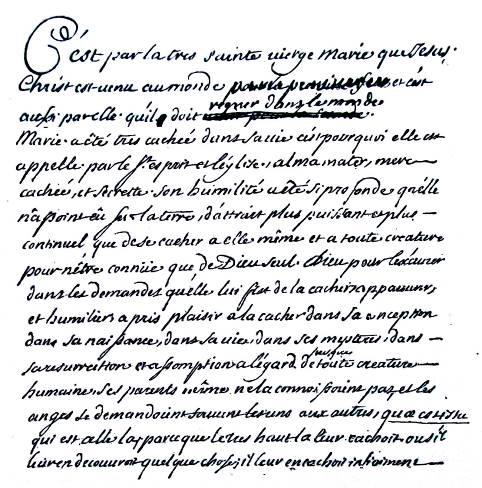 C'est par la tres sainte vierge Marie que Jesus
Christ est venu au monde et c'est
aussi par elle qu'il doit regner dans le monde
Marie a été tres cachée dans sa vie c'est pourquoi elle est
appellé par le St esprit et l'église, alma mater, mere
cachée, et secrette. son humilité a été si profonde qu'elle
n'a point eû sur la terre, d'attrait plus puissant et plus
continuel que de se cacher a elle même et a toute creature
pour n'être connüe que de Dieu seul Dieu pour l'exaucer
dans les demandes qu'elle lui fist de la cacher appauvrir,
et humilier, a pris plaisir a la cacher dans sa conception
dans sa naissance, dans sa vie, dans ses mysteres, dans
sa resurrection et assomption a l'égard de presque toute creature
humaine. ses parents même ne la connoissoient pas, et les
anges se demandoint souvent les uns aux autres, quæ est ista
qui est celle la, parceque le tres haut la leur cachoit ou s'il
leur en decouvroit quelque chose, il leur en cachoit infiniment